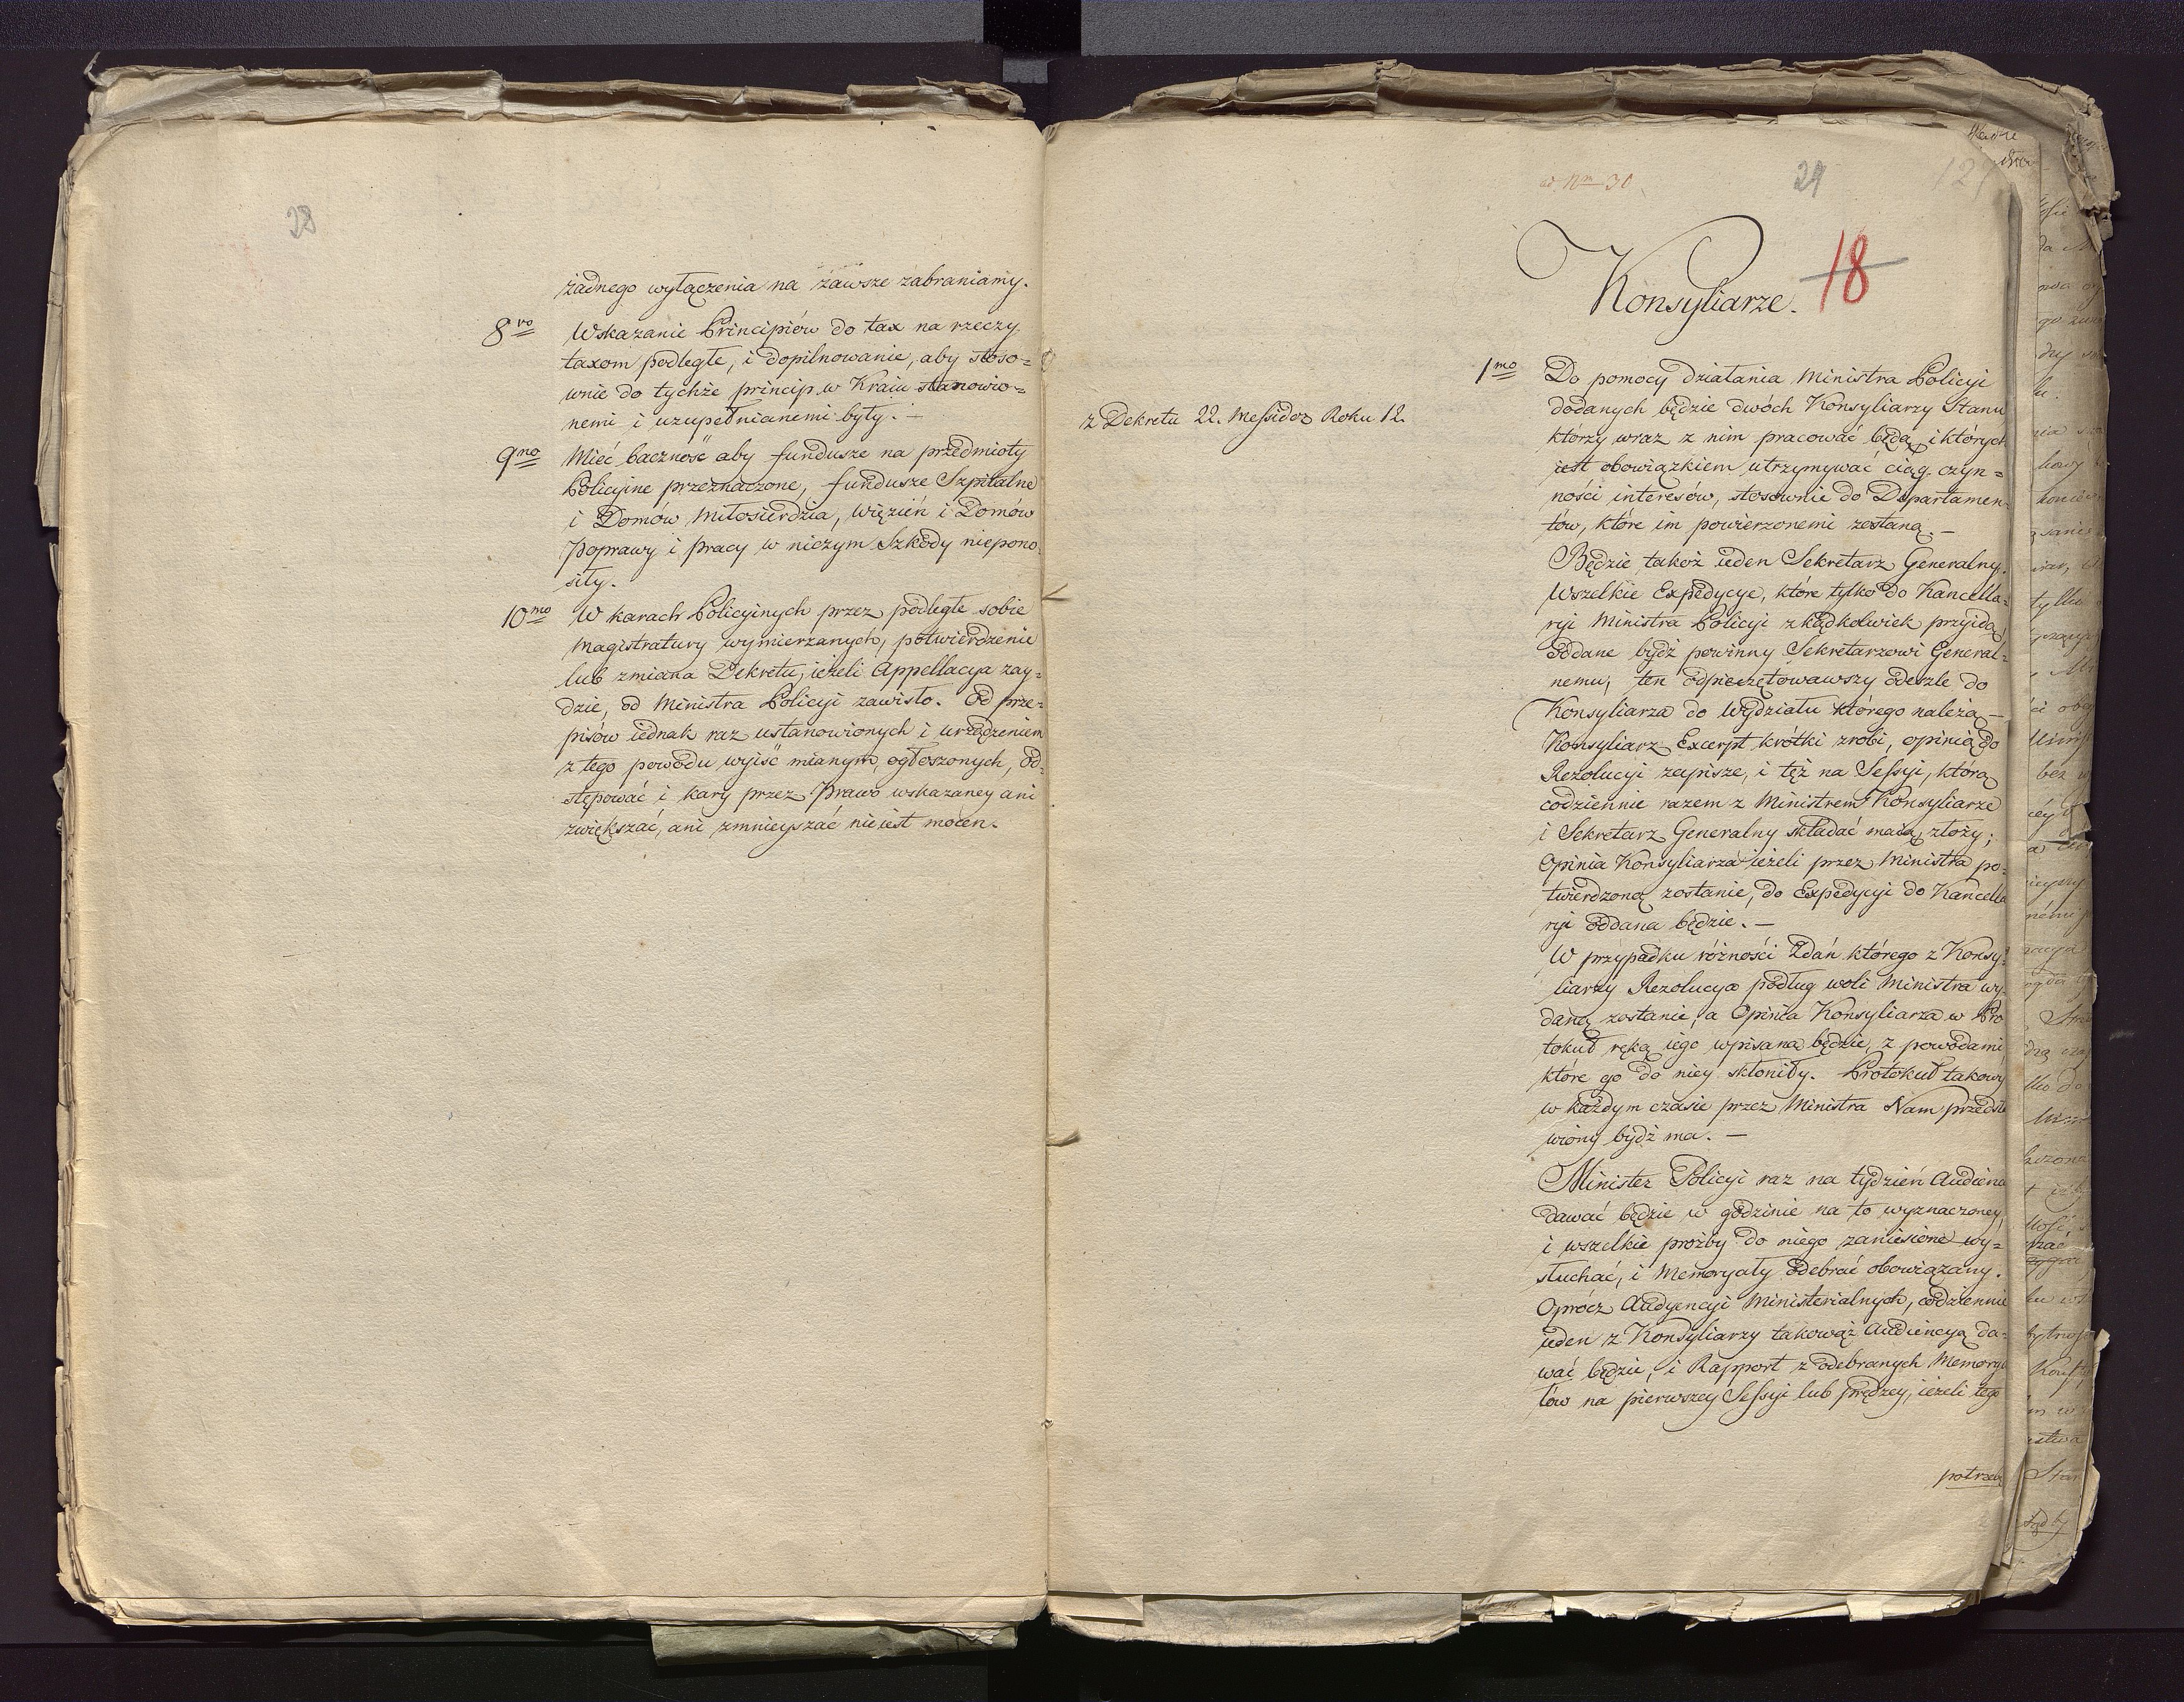 28
żadnego wyłączenia na zawsze zabraniamy.
8vo Wskazanie Principiów do tax na rzeczy
taxom podległe, i dopilnowanie, aby stoso=
wnie do tychże princip. w Kraiu stanowio=
nemi i uzupełnianemi były. –
9no Mieć baczność aby fundusze na przedmioty
Policyine przeznaczone, fundusze Szpitalne
i Domów Miłosierdzia, więzień i Domów
Poprawy i pracy w niczym Szkody niepono=
siły.
10mo W karach Policyinych przez podległe sobie
Magistratury wymierzanych, potwierdzenie
lub zmiana Dekretu, ieżeli Appellacya zay=
dzie, od Ministra Policyi zawisło. Od prze=
pisów iednak raz ustanowionych i urządzeniem
z tego powodu wyiść mianym, ogłoszonych, od=
stępować i kary przez Prawo wskazaney ani
zwiększać, ani zmnieyszać nieiest mocen.
ad. Nm 30
29
Konsyliarze.
18
z Dekretu 22. Messidor Roku 12.
1mo Do pomocy działania Ministra Policyi
dodanych będzie dwóch Konsyliarzy Stanu
którzy wraz z nim pracować będą, i których
iest obowiązkiem utrzymywać ciąg czyn=
ności interesów, stosownie do Departamen=
tów, które im powierzonemi zostaną. –
Będzie takoż ieden Sekretarz Generalny.
Wszelkie Expedycye, które tylko do Kancella=
ryi Ministra Policyi zkądkolwiek przyidą,
oddane bydź powinny Sekretarzowi General=
nemu; ten odpieczętowawszy odeszle do
Konsyliarza do Wydziału ktorego należą –
Konsyliarz Excerpt krótki zrobi, opinią do
Rezolucyi zapisze, i też na Sessyi, którą
codziennie razem z Ministrem Konsyliarze
i Sekretarz Generalny składać maią, złoży;
Opinia Konsyliarza ieżeli przez Ministra po=
twierdzoną zostanie, do Expedycyi do Kancella
ryi oddana będzie. –
W przypadku różności Zdań którego z Konsy=
liarzy Rezolucya podług woli Ministra wy=
daną zostanie, a Opinia Konsyliarza w Pro
tokuł ręką iego wpisana będzie, z powodami
które go do niey skłoniły. Protokuł takowy
w każdym czasie przez Ministra Nam przedsta
wiony bydź ma. –
Minister Policyi raz na tydzień Audienc
dawać będzie w godzinie na to wyznaczoney,
i wszelkie proźby do niego zaniesione wy=
słuchać, i Memoryały odebrać obowiązany.
Oprócz Audyencyi Ministerialnych, codziennie
ieden z Konsyliarzy takowąż Audiencyą da=
wać będzie, i Rapport z odebranych Memorya
łów na pierwszey Sessyi lub prędzey, ieżeli tego
potrzeba